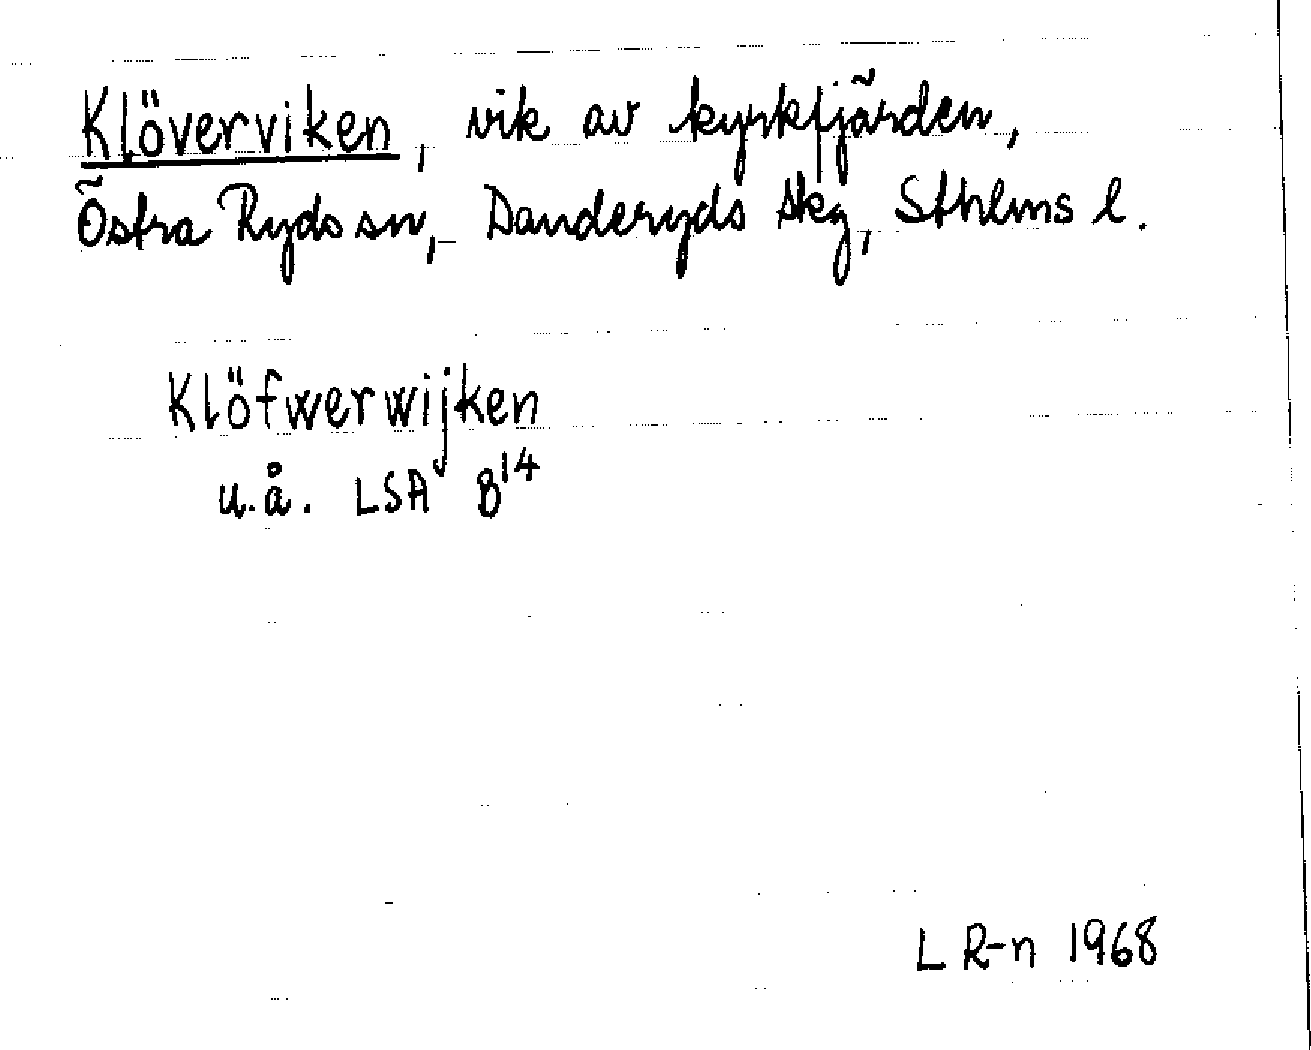 Klöverviken, vik av kyrkfjärden,
Östra Ryds sn, Danderyds skg, Sthlms l.
Klöfwerwijken
u.å. LSA B¹⁴
L R-n 1968